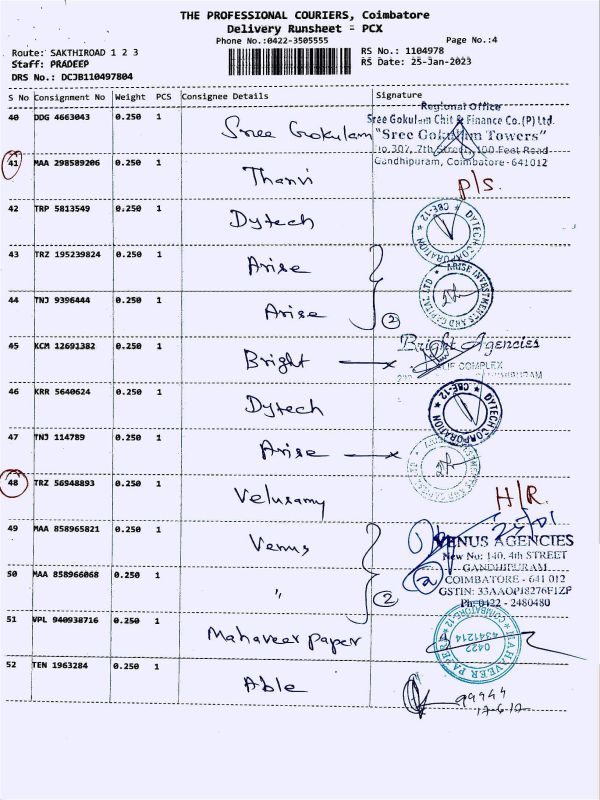 THE PROFESSIONAL COURIERS, Coimbatore
Delivery Runsheet - PCX
Phone No.:0422-3505555 Page No.:4
Route: SAKTHIROAD 1 2 3 RS No.: 1104978
Staff: PRADEEP RS Date: 25-Jan-2023
DRS No.: DCJB110497804
S No Consignment No Weight PCS Consignee Details Signature
Regional Office
40 DDG 4663043 0.250 1 Sree Gokulam Sree Gokulam Chit & Finance Co.(P) Ltd.
"Sree Gokulam Towers"
No.307, 7th Street, 100 Feet Road
Gandhipuram, Coimbatore-641012
41 MAA 298589206 0.250 1 Thanvi P/S.
42 TRP 5813549 0.250 1 Dytech DYTECH CORPORATION * CBE-12 *
43 TRZ 195239824 0.250 1 Arise ARISE INVESTMENTS AND CAPITAL LTD
44 TNJ 9396444 0.250 1 Arise 2
45 KCM 12691382 0.250 1 Bright Bright Agencies
COMPLEX
46 KRR 5640624 0.250 1 Dytech DYTECH CORPORATION * CBE-12 *
47 TNJ 114789 0.250 1 Arise
48 TRZ 56948893 0.250 1 Velusamy H/R.
49 MAA 858965821 0.250 1 Venus VENUS AGENCIES
New No: 140, 4th STREET
GANDHIPURAM
50 MAA 858966068 0.250 1 " 2 COIMBATORE - 641 012
GSTIN: 33AAOPJ8276F1ZP
Ph: 0422 - 2480480
51 VPL 940938716 0.250 1 Mahaveer paper MAHAVEER PAPER COIMBATORE-12
0422
4341214
52 TEN 1963284 0.250 1 Able